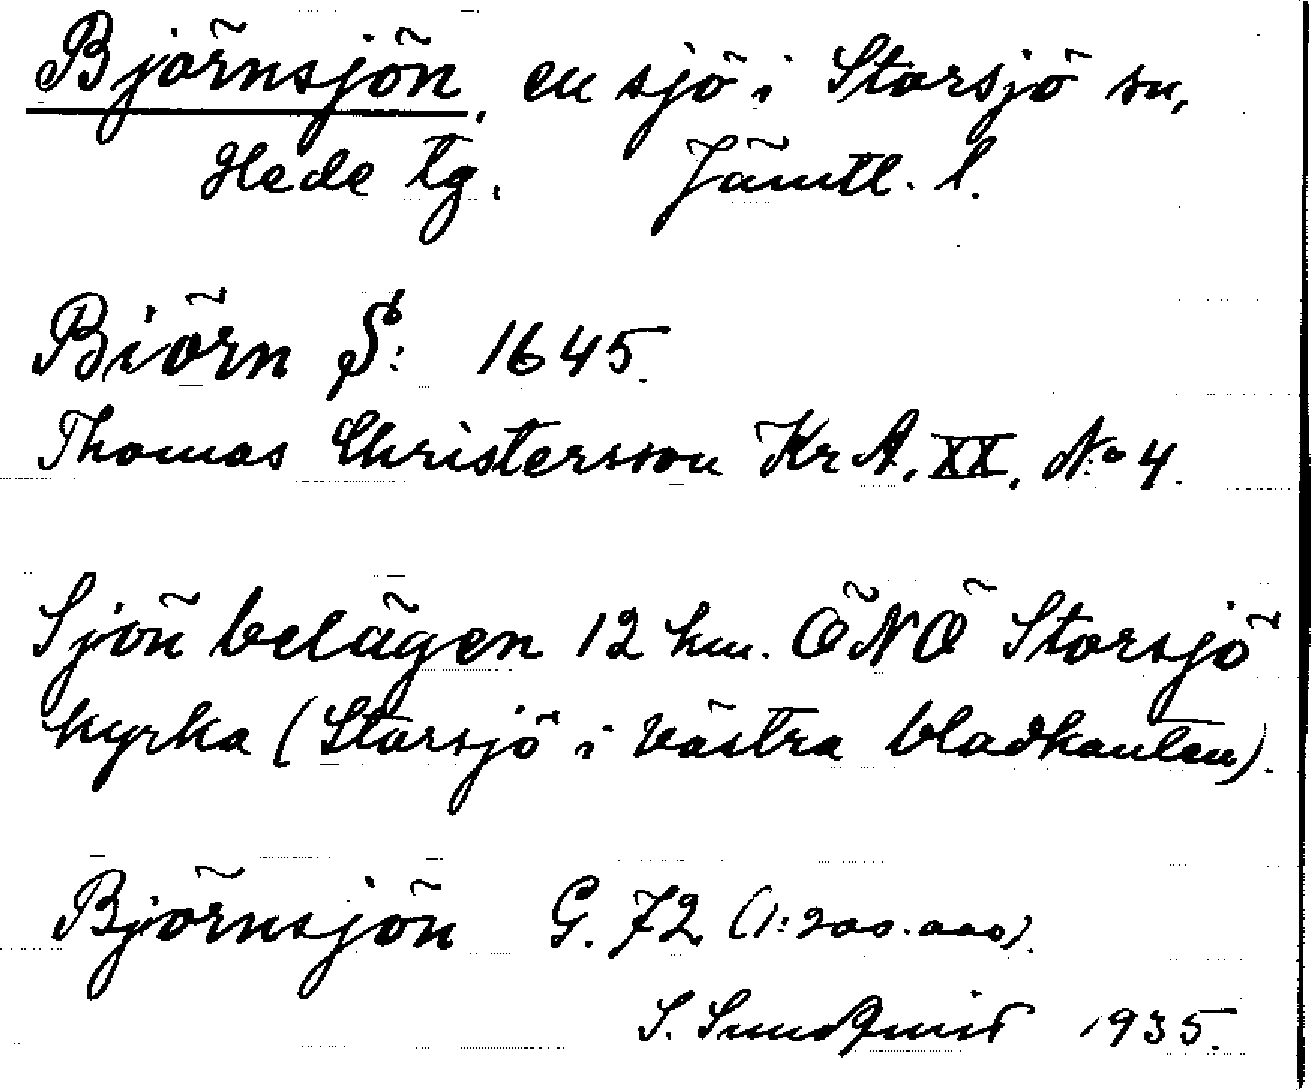 Björnsjön, en sjö i Storsjö sn,
Hede tg. Jämtl. l.
Biörn S: 1645.
Thomas Christersson KrA, XX, No 4.
Sjön belägen 12 km. ÖNÖ Storsjö
kyrka (Storsjö i västra bladkanten).
Björnsjön G. 72 (1:200.000).
S. Sundquist 1935.